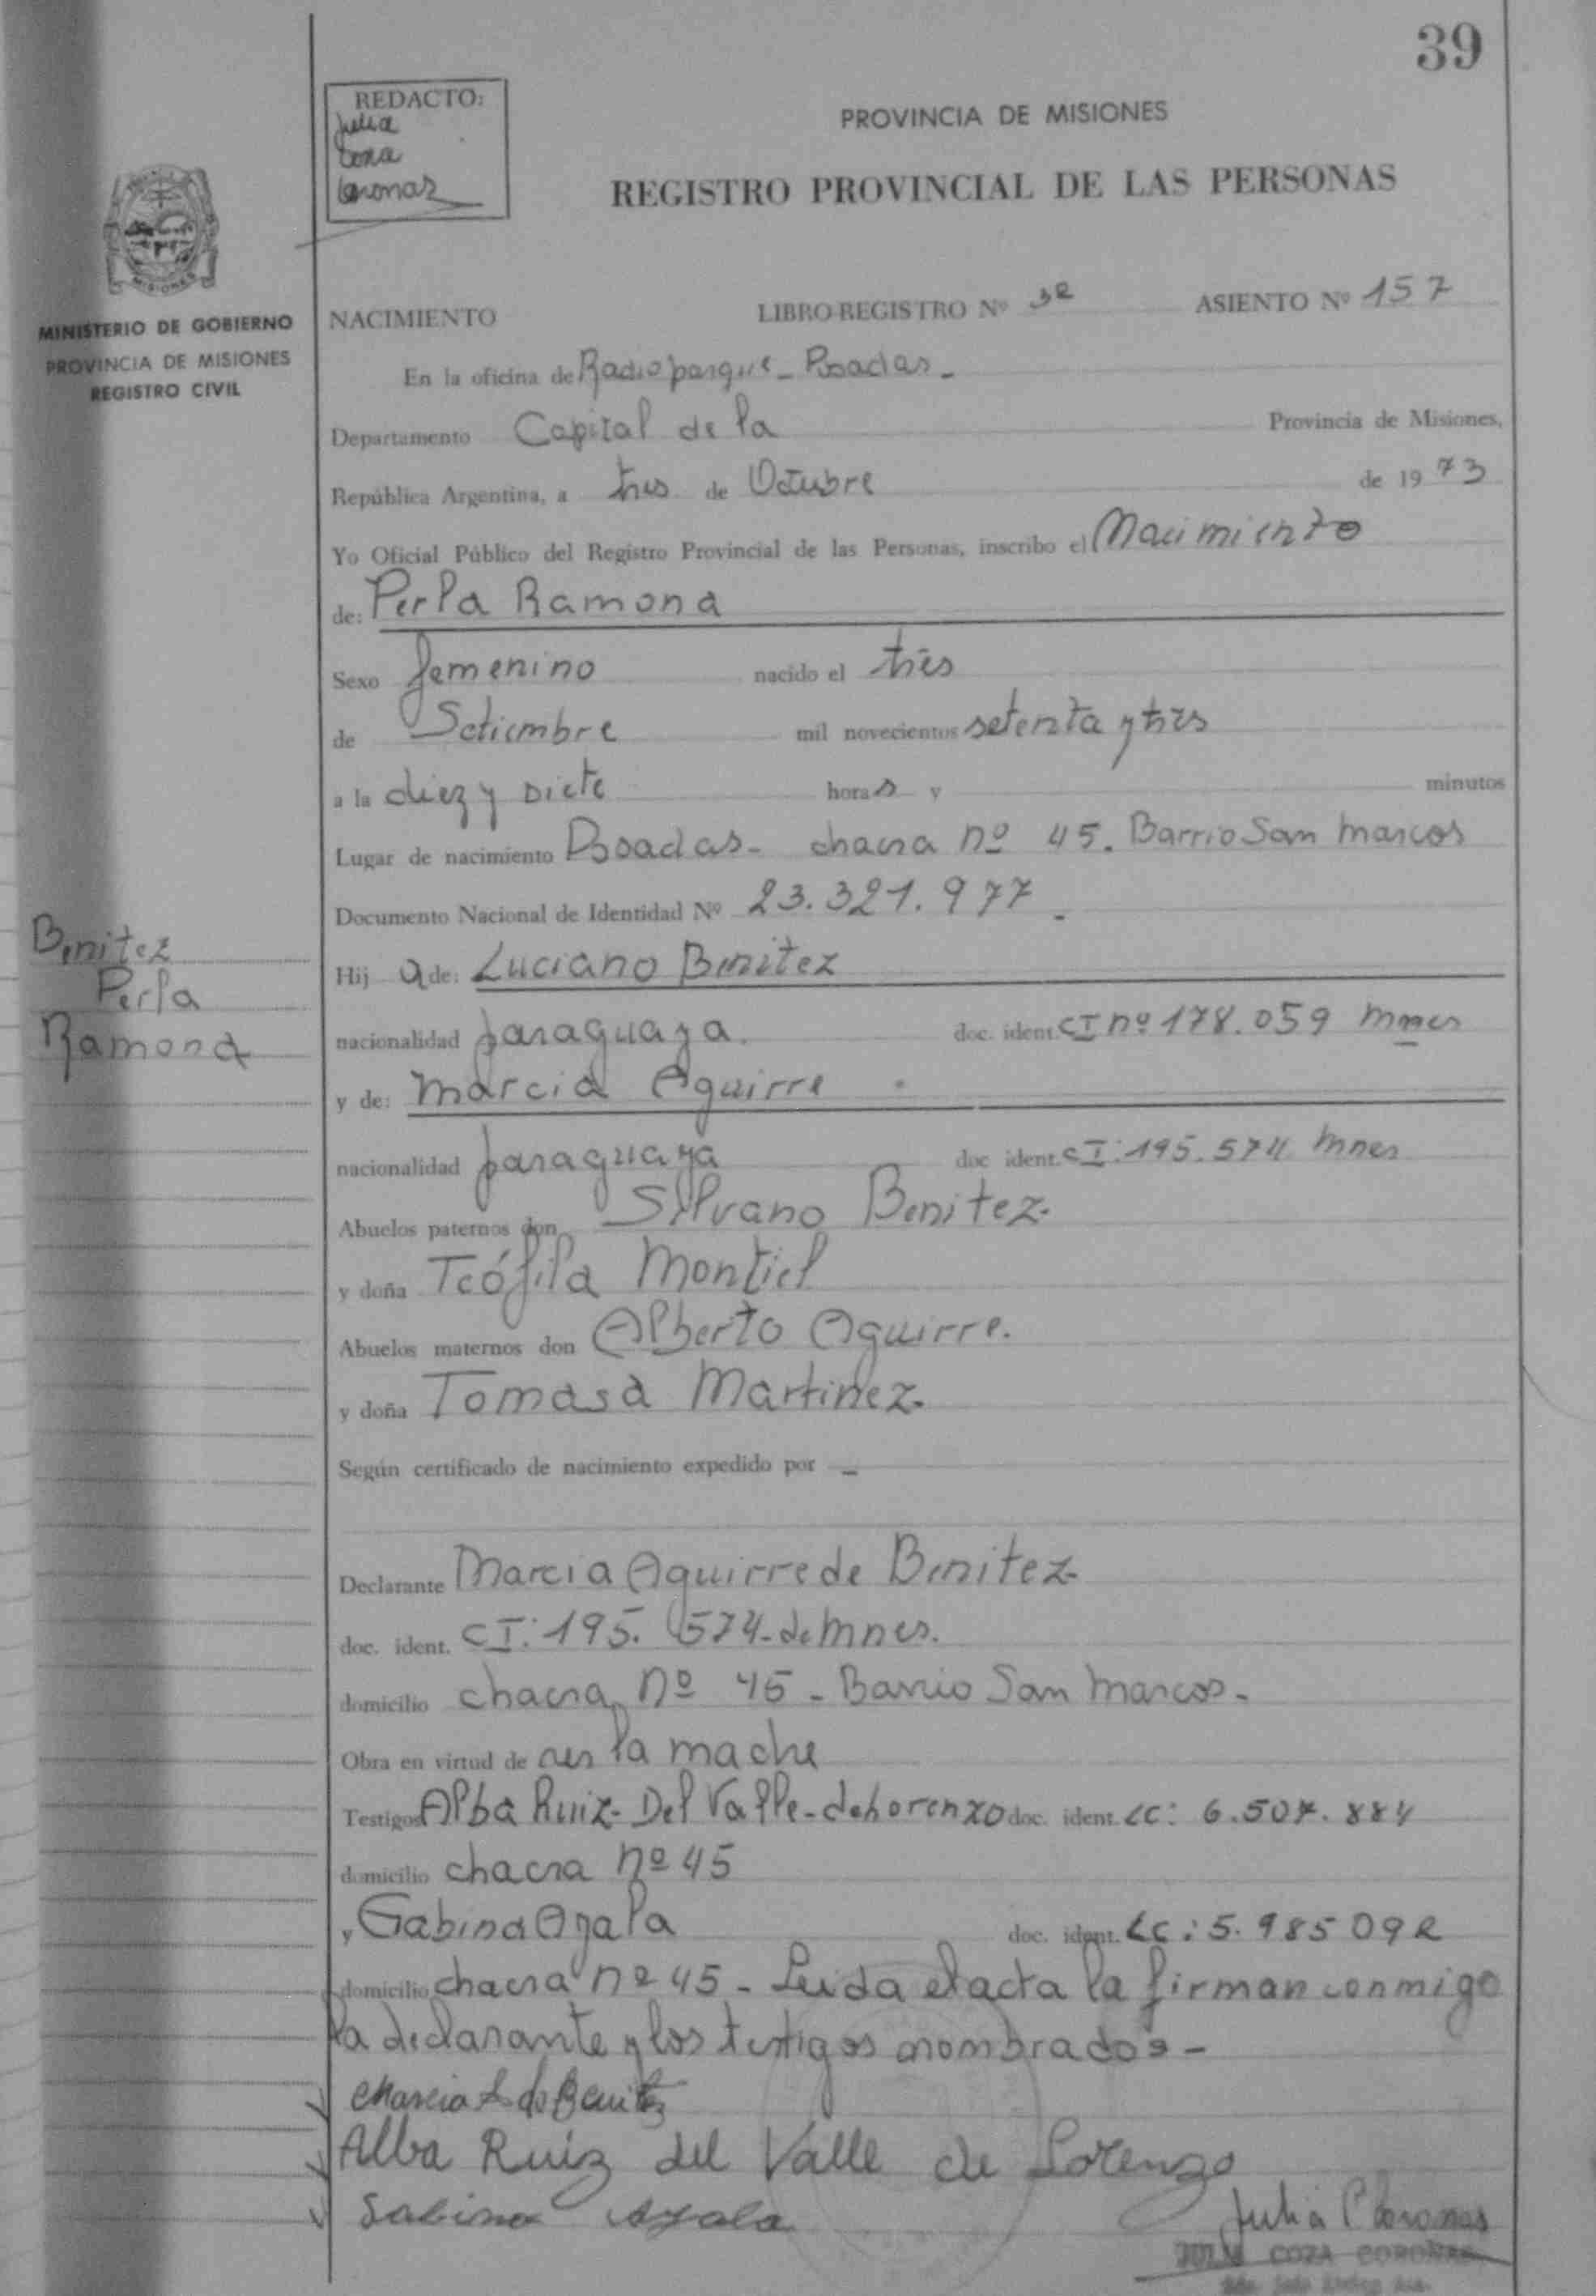 39
REDACTO:
Julia
Coza
Coronas
PROVINCIA DE MISIONES
REGISTRO PROVINCIAL DE LAS PERSONAS
MISIONES
MINISTERIO DE GOBIERNO
PROVINCIA DE MISIONES
REGISTRO CIVIL
NACIMIENTO LIBRO REGISTRO Nº 32 ASIENTO Nº 157
En la oficina de Radio parque - Posadas -
Departamento Capital de la Provincia de Misiones,
República Argentina, a tres de Octubre de 1973
Yo Oficial Público del Registro Provincial de las Personas, inscribo el Nacimiento
de: Perla Ramona
Sexo femenino nacido el tres
de Setiembre mil novecientos setenta y tres
a la diez y siete horas y minutos
Lugar de nacimiento Posadas - chacra nº 45. Barrio San Marcos
Documento Nacional de Identidad Nº 23.321.977.-
Benitez
Perla
Ramona
Hij a de: Luciano Benitez
nacionalidad paraguaya. doc. ident. CI nº 178.059 Mnes
y de: Marcia Aguirre
nacionalidad paraguaya doc ident. CI: 195.574 Mnes
Abuelos paternos don Silvano Benitez.
y doña Teófila Montiel
Abuelos maternos don Alberto Aguirre.
y doña Tomasa Martinez.
Según certificado de nacimiento expedido por -
Declarante Marcia Aguirre de Benitez-
doc. ident. CI: 195. 574 - de Mnes.
domicilio chacra nº 45 - Barrio San Marcos -
Obra en virtud de ser la madre
Testigos Alba Ruiz - Del Valle - de Lorenzo doc. ident. LC: 6.507.884
domicilio chacra nº 45
y Gabina Ayala doc. ident. LC: 5.985 092
domicilio chacra nº 45 - Leida el acta la firman conmigo
la declarante y los testigos nombrados -
Marcia A de Benitez
Alba Ruiz del Valle de Lorenzo
Sabina Ayala
Julia C Coronas
JULIA COZA CORONAS